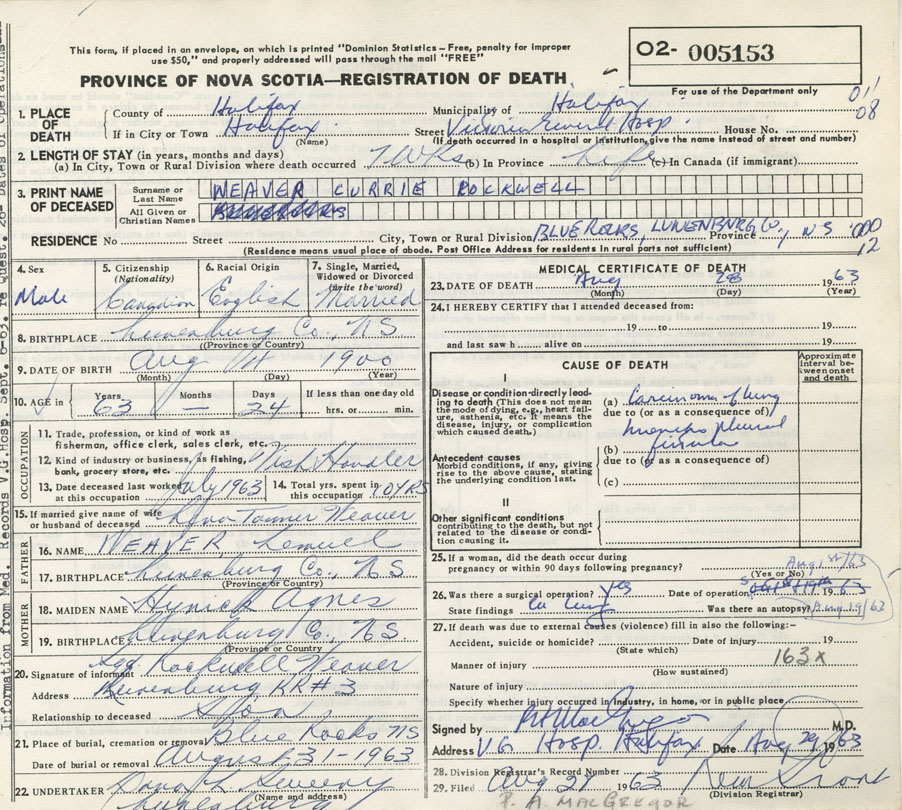 This form, if placed in an envelope, on which is printed "Dominion Statistics – Free, penalty for improper
use $50," and properly addressed will pass through the mail "FREE"
O2- 005153
PROVINCE OF NOVA SCOTIA—REGISTRATION OF DEATH
For use of the Department only
011
08
1. PLACE OF DEATH
County of Halifax Municipality of Halifax
If in City or Town Halifax Street Victoria General Hosp. House No.
(Name) (If death occurred in a hospital or institution, give the name instead of street and number)
2. LENGTH OF STAY (in years, months and days)
(a) In City, Town or Rural Division where death occurred 7 WKS (b) In Province Life (c) In Canada (if immigrant)
3. PRINT NAME OF DECEASED
Surname or Last Name WEAVER CURRIE ROCKWELL
All Given or Christian Names
RESIDENCE No Street City, Town or Rural Division BLUE ROCKS, LUNENBURG Co, Province N S
000
12
(Residence means usual place of abode. Post Office Address for residents in rural parts not sufficient)
4. Sex Male
5. Citizenship (Nationality) Canadian
6. Racial Origin English
7. Single, Married, Widowed or Divorced (write the word) Married
8. BIRTHPLACE Lunenburg Co., NS
(Province or Country)
9. DATE OF BIRTH Aug 1900
(Month) (Day) (Year)
10. AGE in Years 63 Months — Days 24 If less than one day old hrs. or min.
OCCUPATION
11. Trade, profession, or kind of work as fisherman, office clerk, sales clerk, etc.
12. Kind of industry or business, as fishing, bank, grocery store, etc. Handler
13. Date deceased last worked at this occupation July 1963
14. Total yrs. spent in this occupation YRS
15. If married give name of wife or husband of deceased Tanner Weaver
FATHER
16. NAME WEAVER, Lemuel
17. BIRTHPLACE Lunenburg Co., NS
(Province or Country)
MOTHER
18. MAIDEN NAME Hynick Agnes
19. BIRTHPLACE Lunenburg Co., NS
(Province or Country)
20. Signature of informant Sgd Rockwell Weaver
Address Lunenburg RR#3
Relationship to deceased Son
21. Place of burial, cremation or removal Blue Rocks NS
Date of burial or removal August 31-1963
22. UNDERTAKER
Lunenburg
(Name and address)
MEDICAL CERTIFICATE OF DEATH
23. DATE OF DEATH Aug 28 1963
(Month) (Day) (Year)
24. I HEREBY CERTIFY that I attended deceased from:
19 to 19
and last saw h alive on 19
CAUSE OF DEATH
Approximate interval between onset and death
I
Disease or condition directly leading to death (This does not mean the mode of dying, e.g., heart failure, asthenia, etc. It means the disease, injury, or complication which caused death.)
(a) Carcinoma of lung
due to (or as a consequence of)
Antecedent causes
Morbid conditions, if any, giving rise to the above cause, stating the underlying condition last.
(b) pleural fistula
due to (or as a consequence of)
(c)
II
Other significant conditions
contributing to the death, but not related to the disease or condition causing it.
25. If a woman, did the death occur during
pregnancy or within 90 days following pregnancy?
(Yes or No)
26. Was there a surgical operation? yes Date of operation 1963
State findings Ca lung Was there an autopsy? Aug 19/63
27. If death was due to external causes (violence) fill in also the following:–
Accident, suicide or homicide? Date of injury 19
(State which)
163x
Manner of injury
(How sustained)
Nature of injury
Specify whether injury occurred in industry, in home, or in public place
Signed by M.D.
Address V.G. Hosp. Halifax Date Aug 29 1963
28. Division Registrar's Record Number
29. Filed Aug 1963
(Division Registrar)
A. MACGREGOR
Information from Med. Records V.G. Hosp. Sept. 6-63. re Quest. 26- Dates of Operations